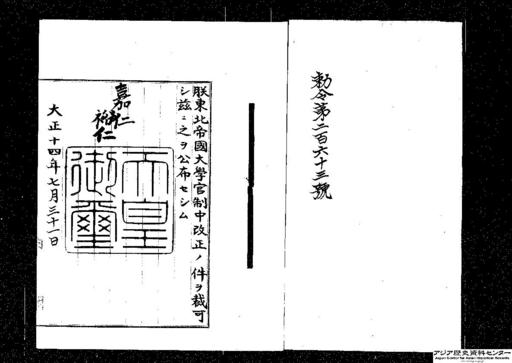 勅令第二百六十三號
朕東北帝國大學官制中改正ノ件ヲ裁可
シ茲ニ之ヲ公布セシム
嘉仁
裕仁
天皇
御璽
大正十四年七月三十一日
アジア歴史資料センター
Japan Center for Asian Historical Records